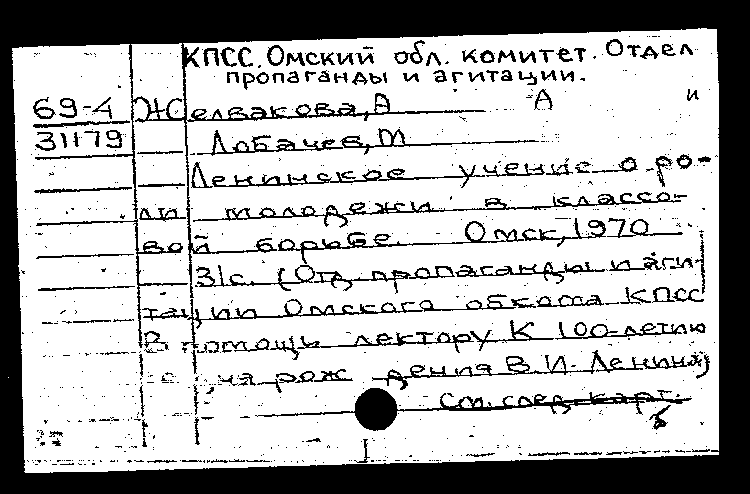 КПСС. Омский обл. комитет. Отдел
пропаганды и агитации.
69-4 Желвакова, А А и
31179 Лобачев, М
Ленинское учение о ро-
ли молодежи в классо-
вой борьбе. Омск, 1970
31с. (Отд. пропаганды и аги-
тации Омского обкома КПСС
В помощь лектору К 100-летию
со дня рож дения В.И. Ленина)
См. след. карт.